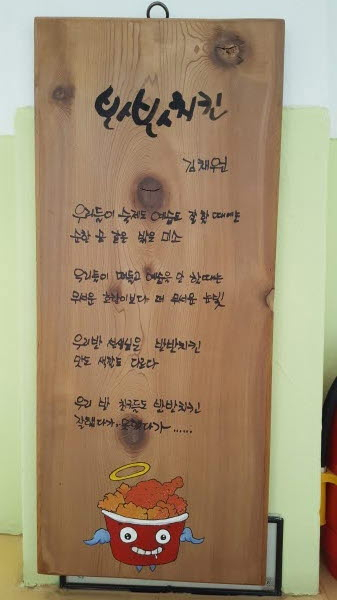 반반치킨
김채원
우리들이 숙제도 예습도 잘 할 때에는
순한 양 같은 밝은 미소
우리들이 떠들고 예습을 안 할때는
무서운 호랑이보다 더 무서운 눈빛
우리반 선생님은 반반치킨
맛도 색깔도 다르다
우리 반 친구들도 반반치킨
잘했다가.못했다가~......